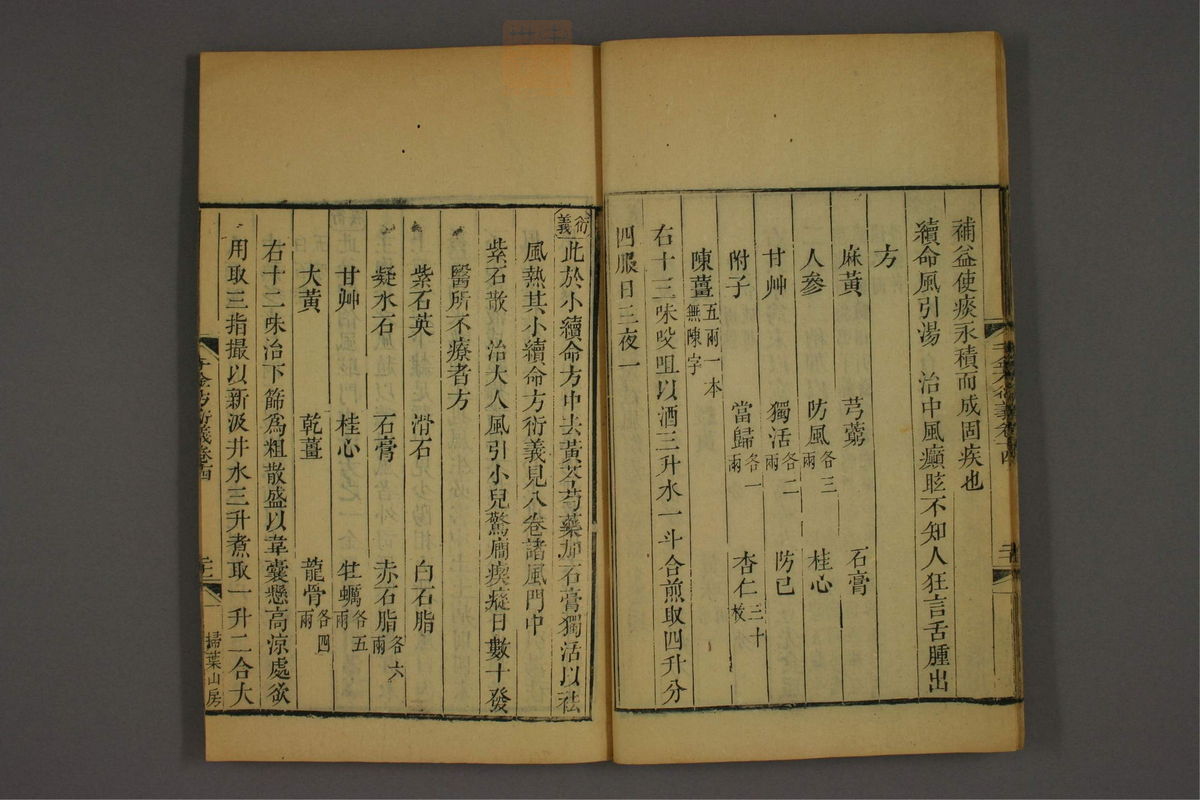 補益使痰永積而成固疾也
續命風引湯　治中風癲眩不知人狂言舌腫出
方
麻黃　芎藭　石膏
人參　防風各三兩　桂心
甘艸　獨活各二兩　防己
附子　當歸各一兩　杏仁三十枚
陳薑五兩一本無陳字
右十三味㕮咀以酒三升水一斗合煎取四升分
四服日三夜一
衍義此於小續命方中去黃芩芍藥加石膏獨活以祛
風熱其小續命方衍義見八卷諸風門中
紫石散　治大人風引小兒驚癎瘈瘲日數十發
醫所不療者方
紫石英　滑石　白石脂
凝水石　石膏　赤石脂各六兩
甘艸　桂心　牡蠣各五兩
大黃　乾薑　龍骨各四兩
右十二味治下篩爲粗散盛以韋囊懸高涼處欲
用取三指撮以新汲井水三升煮取一升二合大
千金方衍義卷十四
掃葉山房